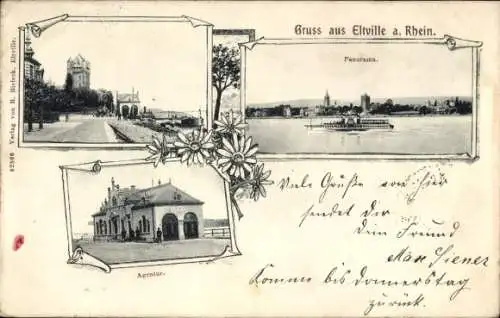 Gruss aus Eltville a. Rhein.
Panorama.
Agentur.
Verlag von H. Eltville.
Viele Grüße von hier
sendet dir
dein Freund
Max Siener
Komme bis donnerstag
zurück.